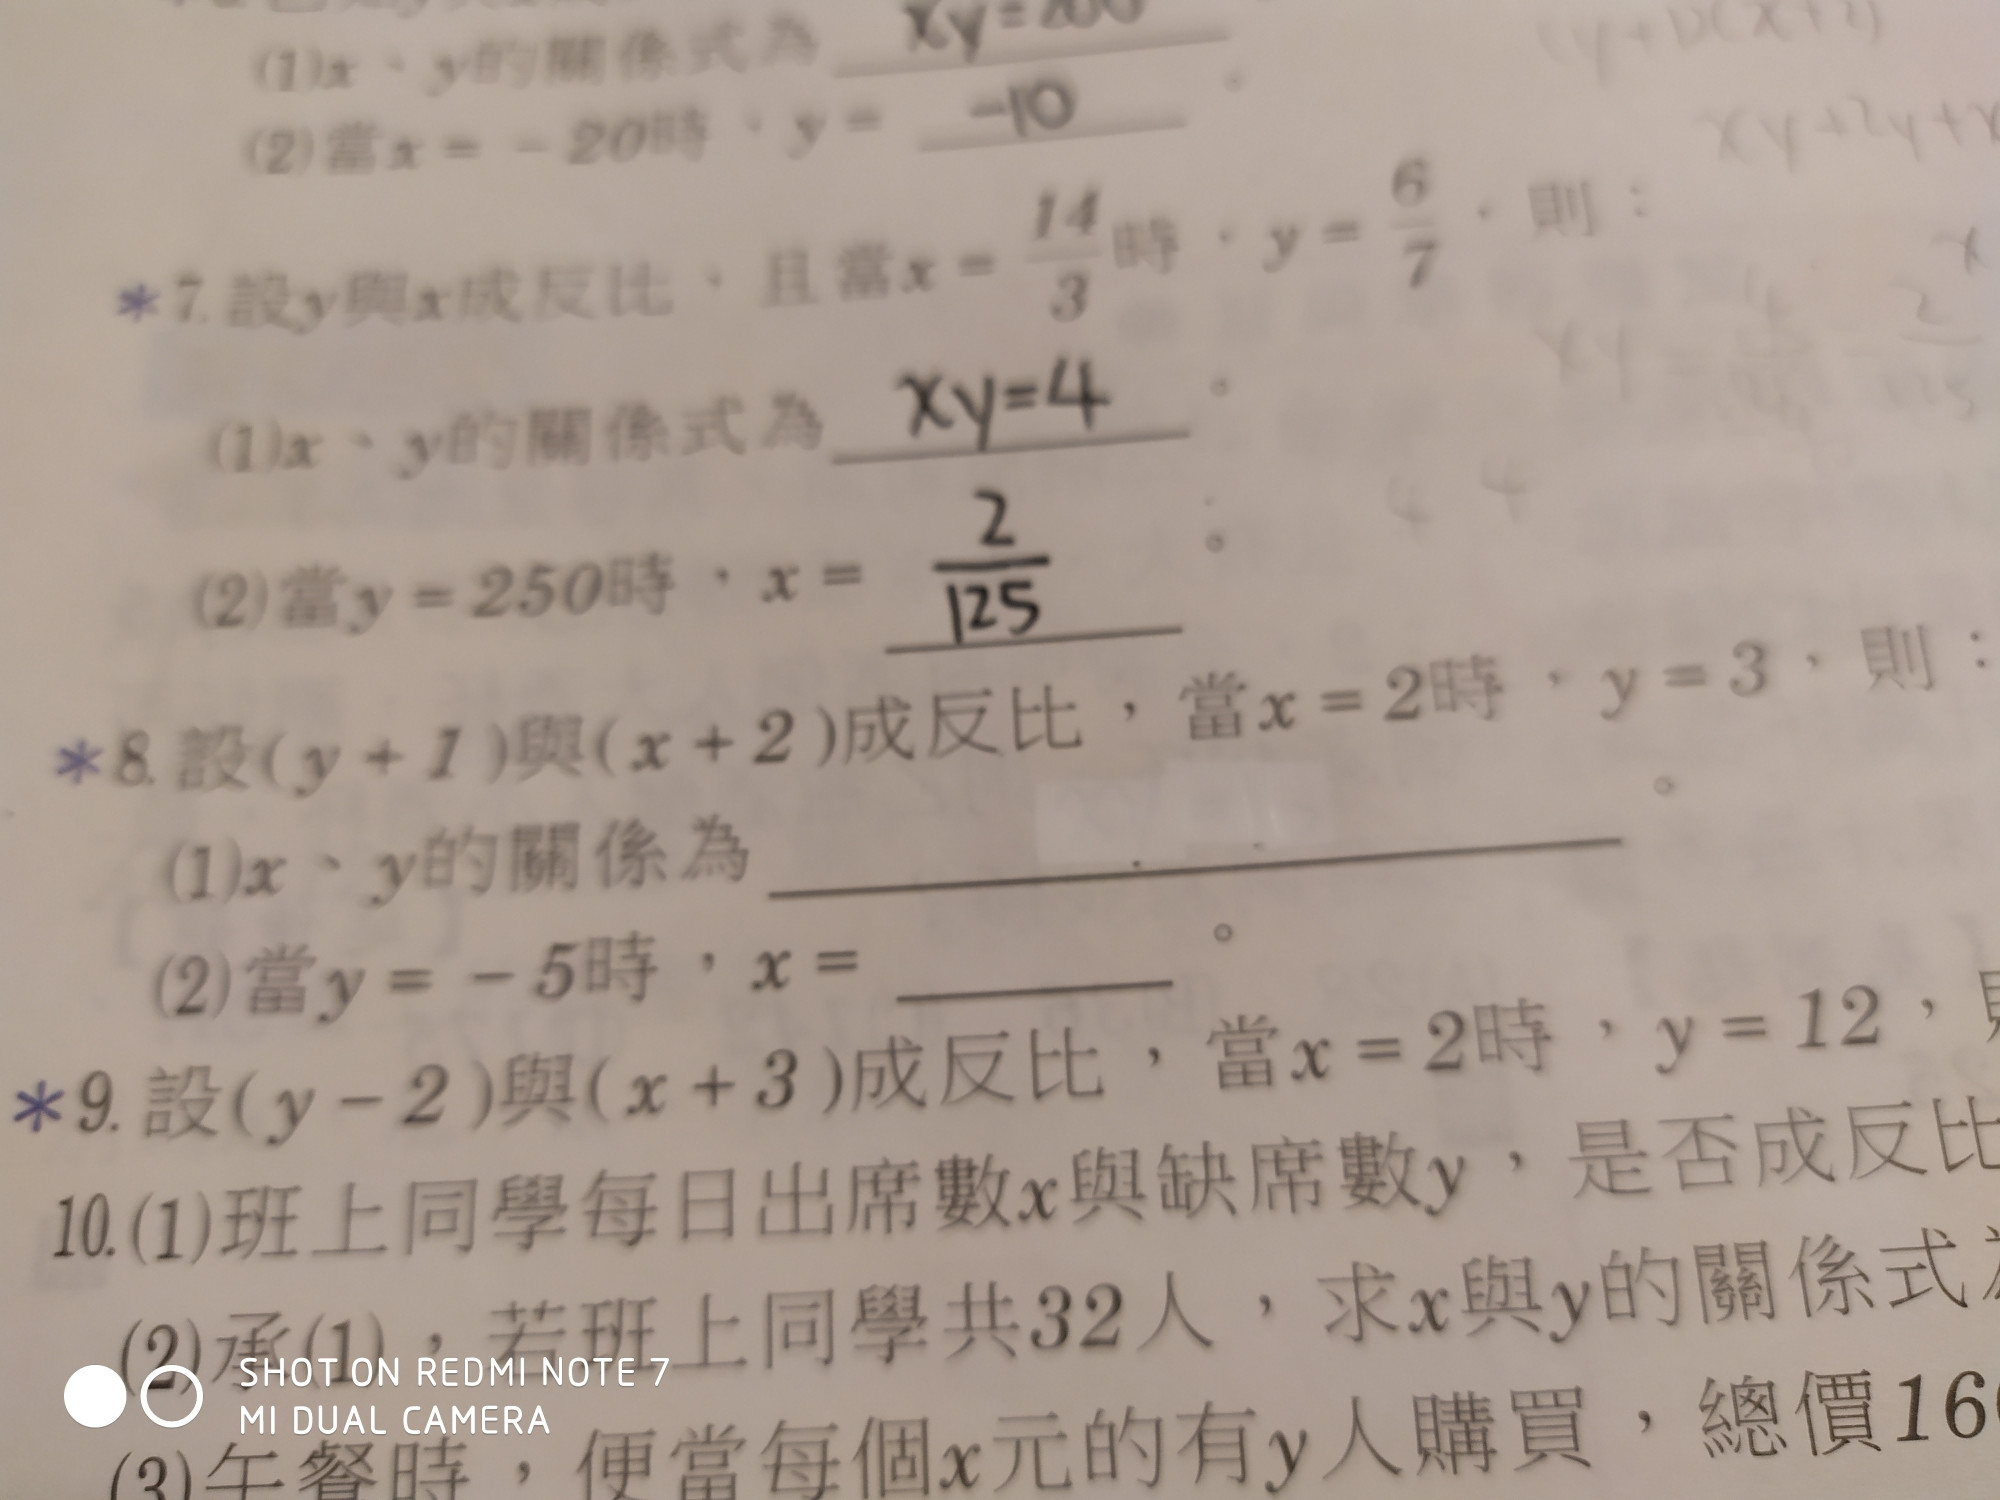 (1)x、y的關係式為 xy=200
(2)當x=-20時,y= -10 。
(y+1)(x+2)
*7.設y與x成反比,且當x=14/3時,y=6/7,則:
(1)x、y的關係式為 xy=4 。
(2)當y=250時,x= 2/125 。
4 4
*8.設(y+1)與(x+2)成反比,當x=2時,y=3,則:
(1)x、y的關係為 。
(2)當y=-5時,x= 。
*9.設(y-2)與(x+3)成反比,當x=2時,y=12,
10.(1)班上同學每日出席數x與缺席數y,是否成反比
(2)承(1),若班上同學共32人,求x與y的關係式
(3)午餐時,便當每個x元的有y人購買,總價16
SHOT ON REDMI NOTE 7
MI DUAL CAMERA